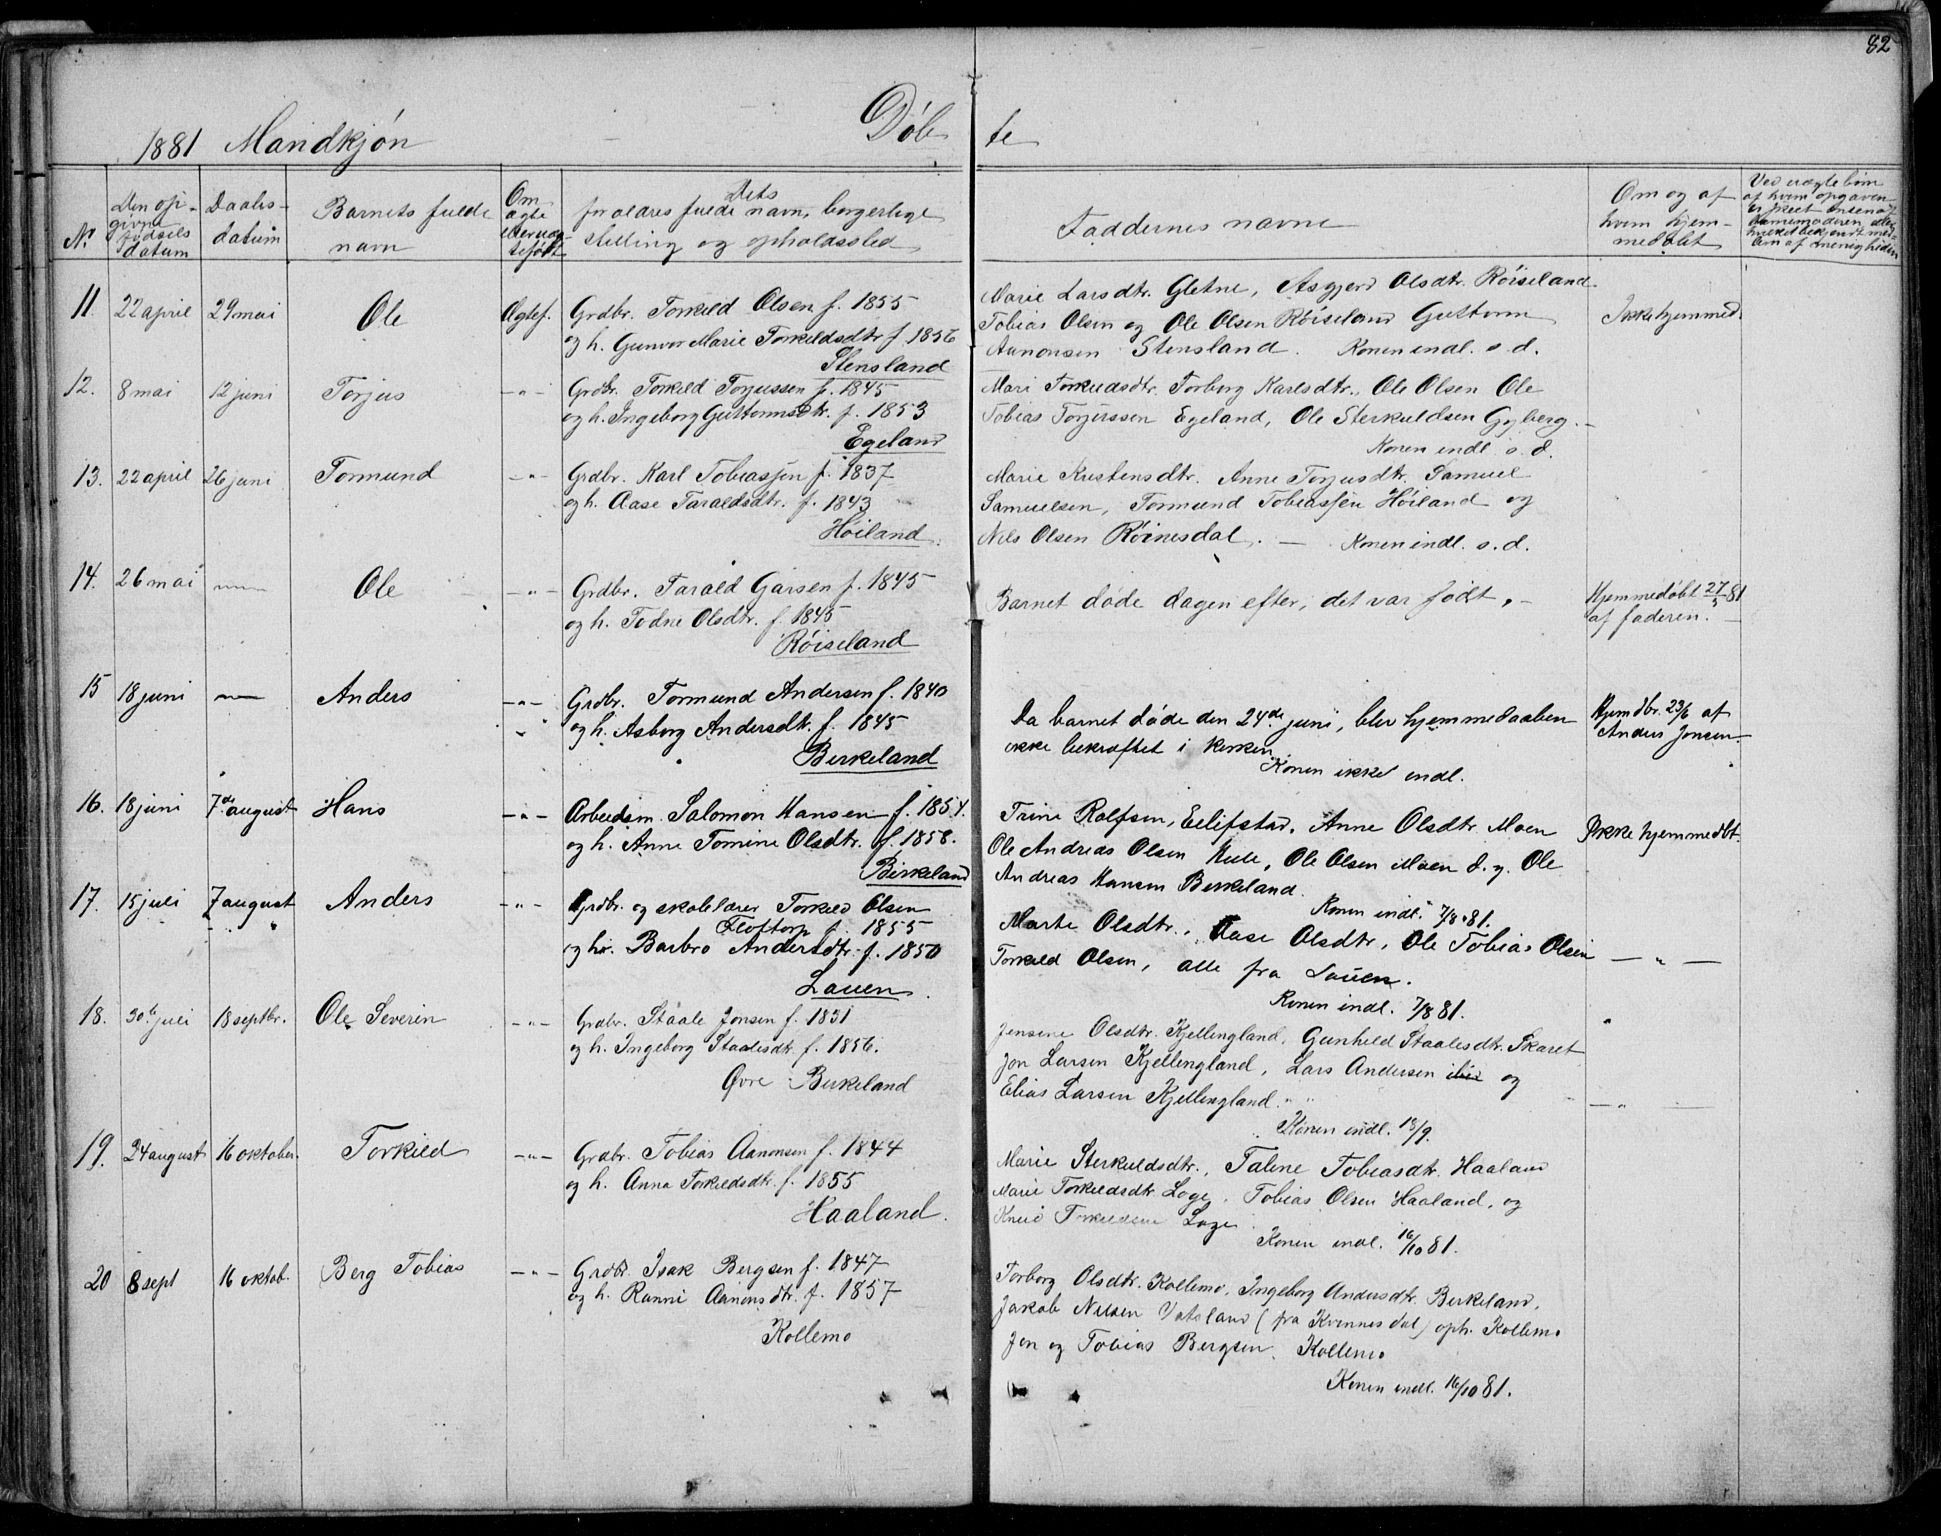 82
1881 Mandkjön Döbte
No.
Den opgivne födsels datum
Daabsdatum
Barnets fulde navn
Om ægte eller uægtefödt
Dets forældres fulde navn, borgerlige stilling og opholdssted
Faddernes navne
Om og af hvem hjemmedöbt
Ved uægte börn af hvem opgaven er skeet
11. 22 april 29 mai Ole Ægtef. Grdbr. Torkild Olsen f. 1855
og h. Gunvor Marie Torkildsdtr f. 1856
Stensland
Marie Larsdtr. Gletne, Asgjerd Olsdtr. Röiseland.
Tobias Olsen og Ole Olsen Röiseland Guttorm
Aanonsen Stensland. Konen indl. s. d.
Ikke hjemmed.
12. 8 mai 12 juni Torjus -"- Grdbr. Torkild Torjussen f. 1845
og h. Ingeborg Guttormsdtr. f. 1853
Egeland
Mari Torkildsdtr. Torborg Karlsdtr. Ole Olsen Ole
Tobias Torjussen Egeland, Ole Sterkuldsen Gyberg.-
Konen indl. s. d.
13. 22 april 26 juni Tormund -"- Grdbr. Karl Tobiassen f. 1837
og h. Aase Taraldsdtr. f. 1843
Höiland.
Marie Kristensdtr. Anne Torjusdtr. Samuel
Samuelsen, Tormund Tobiassen Höiland og
Nils Olsen Röinesdal. - Konen indl. s. d.
14. 26 mai — Ole -"- Grdbr. Tarald Garsen f. 1845
og h. Todne Olsdtr. f. 1845
Röiseland
Barnet döde dagen efter, det var födt. -
Hjemmedöbt 27/5 81
af faderen. -
15 18 juni — Anders -"- Grdbr. Tormund Andersen f. 1840
og h. Asborg Andersdtr. f. 1845
Birkeland
Da barnet döde den 24de juni, blev hjemmedaaben
ikke bekræftet i kirken.
Konen ikke indl.
Hjemdbt. 23/6 af
Anders Jonsen.
16. 18 juni 7de august Hans -"- Arbeidsm. Salomon Hansen f. 1854.
og h. Anne Tomine Olsdtr. f. 1858.
Birkeland
Trine Rolfsen, Eelifstad. Anne Olsdtr. Moen
Ole Andreas Olsen Hule, Ole Olsen Moen d. y. Ole
Andreas Hansen Birkeland.
Konen indl. 7/8 81.
Ikke hjemmedbt.
17. 15 juli 7 august Anders -"- Grdbr. og skolelærer Torkild Olsen
Flottorp f. 1855
og h. Barbro Andersdtr. f. 1850
Lauen.
Marte Olsdtr., Aase Olsdtr, Ole Tobias Olsen
Torkild Olsen, alle fra Lauen.
Konen indl. 7/8 81.
— " —
18. 30te juli 18 septbr. Ole Severin -"- Grdbr. Staale Jonsen f. 1851
og h. Ingeborg Staalesdtr. f. 1856.
Övre Birkeland
Jensine Olsdtr. Kjellingland, Gunhild Staalesdtr. Skaret
Jon Larsen Kjellingland, Lars Andersen og
Elias Larsen Kjellingland.
Konen indl. 18/9.
— " —
19. 24 august 16 oktober. Torkild -"- Grdbr. Tobias Aanonsen f. 1844
og h. Anna Torkildsdtr. f. 1855
Haaland.
Marie Sterkuldsdtr., Taline Tobiasdtr. Haaland
Marie Torkildsdtr. Loge. Tobias Olsen Haaland, og
Knud Torkildsen Loge
Konen indl. 16/10 81.
20 8 sept 16 oktob. Berg Tobias -"- Grdbr. Isak Bergsen f. 1847
og h. Ranni Aanonsdtr. f. 1857
Kollemo
Torborg Olsdtr. Kollemo, Ingeborg Andersdtr. Birkeland,
Jakob Nilsen Vatsland (fra Kvinnesdal) oph. Kollemo
Jon og Tobias Bergsen. Kollemo
Konen indl. 16/10 81.